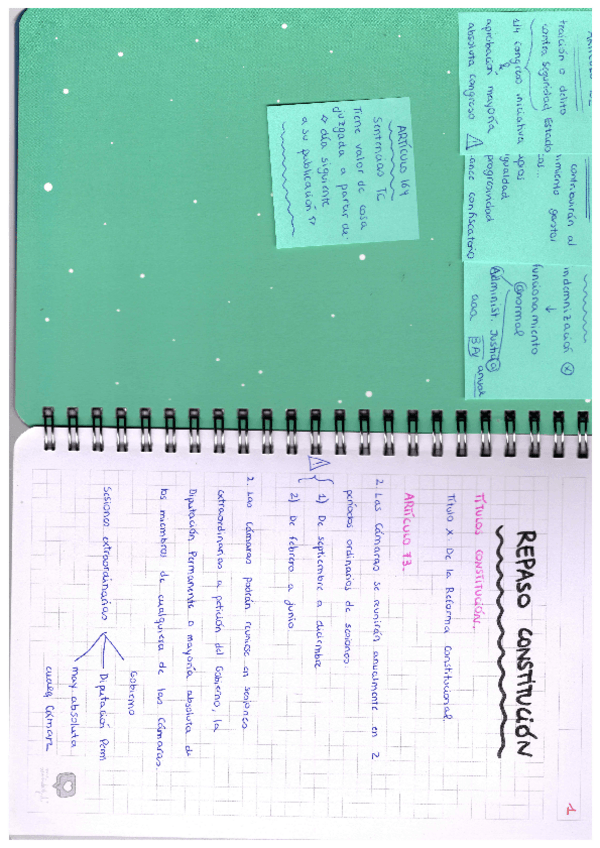 traición o delito
contra seguridad Estado
1/4 Congreso iniciativa
&
aprobación mayoría
absoluta congreso
contribuirán al
gastos
igualdad
progresividad
confiscatorio
indemnización
↓
funcionamiento
anormal
Administ. Justicia
anual
ARTÍCULO 164
Sentencias TC
Tiene valor de cosa
juzgada a partir de:
día siguiente
a su publicación
1
REPASO CONSTITUCIÓN
TÍTULOS CONSTITUCIÓN.
Título X De la Reforma Constitucional.
ARTÍCULO 73.
2. Las Cámaras se reunirán anualmente en 2
periodos ordinarios de sesiones
1) De septiembre a diciembre
2) De febrero a junio
2. Las Cámaras podrán reunirse en sesiones
extraordinarias a petición del Gobierno, la
Diputación Permanente o mayoría absoluta de
los miembros de cualquiera de las Cámaras.
Gobierno
Sesiones extraordinarias
Diputación Perm
may. absoluta
cualq Cámara